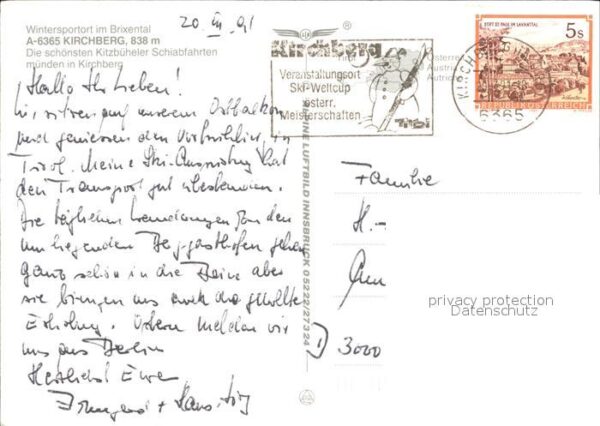 20. III. 91
Wintersportort im Brixental
A-6365 KIRCHBERG, 838 m
Die schönsten Kitzbüheler Schiabfahrten
münden in Kirchberg
Hallo Ihr Lieben!
Wir sitzen auf unserem Ostbalkon
und geniessen den Vorfrühling, in
Tirol. Meine Ski-Ausrüstung hat
den Transport gut überstanden.
Die täglichen Wanderungen zu den
umliegenden Berggasthöfen gehen
ganz schön in die Beine aber
sie bringen uns auch die gewollte
Erholung. Ostern melden wir
uns aus Berlin
Herzlichst Eure
Irmgard + Hans-Jörg
ALPINE LUFTBILD INNSBRUCK 0 52 22/27 3 24
®
Kirchberg
Tirol
Österre
Austria
Veranstaltungsort
Ski-Weltcup
österr.
Meisterschaften
Tirol
KIRCHBERG
6365
STIFT ST. PAUL IM LAVANTTAL
5 S
REPUBLIK ÖSTERREICH
Familie
H.-
D 3000
privacy protection
Datenschutz